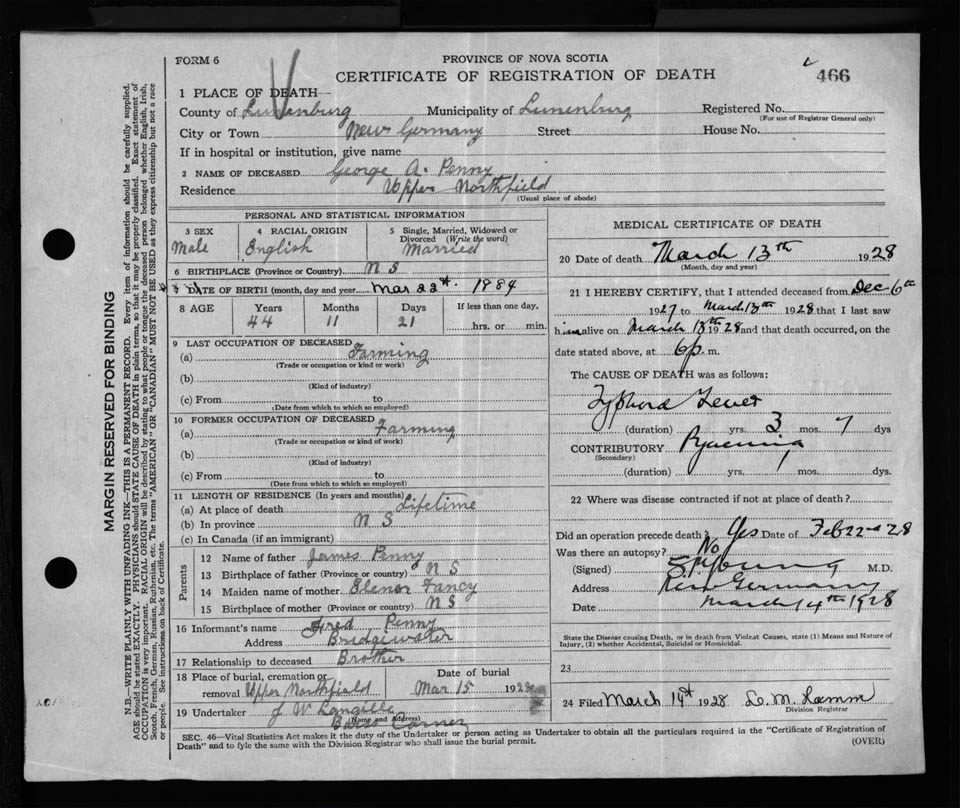 FORM 6
PROVINCE OF NOVA SCOTIA
CERTIFICATE OF REGISTRATION OF DEATH
466
1 PLACE OF DEATH
County of Lunenburg Municipality of Lunenburg Registered No.
(For use of Registrar General only)
City or Town New Germany Street House No.
If in hospital or institution, give name
2 NAME OF DECEASED George A. Penny
Residence Upper Northfield
(Usual place of abode)
PERSONAL AND STATISTICAL INFORMATION
3 SEX 4 RACIAL ORIGIN 5 Single, Married, Widowed or Divorced (Write the word)
Male English Married
6 BIRTHPLACE (Province or Country) N S
7 DATE OF BIRTH (month, day and year) Mar 22st. 1884
8 AGE Years Months Days If less than one day,
44 11 21 hrs. or min.
9 LAST OCCUPATION OF DECEASED
(a) Farming
(Trade or occupation or kind or work)
(b)
(Kind of industry)
(c) From to
(Date from which to which so employed)
10 FORMER OCCUPATION OF DECEASED
(a) Farming
(Trade or occupation or kind of work)
(b)
(Kind of industry)
(c) From to
(Date from which to which so employed)
11 LENGTH OF RESIDENCE (In years and months)
(a) At place of death Lifetime
(b) In province N S
(c) In Canada (if an immigrant)
Parents
12 Name of father James Penny
13 Birthplace of father (Province or country) N S
14 Maiden name of mother Elenor Fancy
15 Birthplace of mother (Province or country) N S
16 Informant's name Fred Penny
Address Bridgewater
17 Relationship to deceased Brother
18 Place of burial, cremation or removal Upper Northfield
Date of burial
Mar 15 1928
19 Undertaker J W Langille
(Name and Address)
Corner
MEDICAL CERTIFICATE OF DEATH
20 Date of death March 13th 1928
(Month, day and year)
21 I HEREBY CERTIFY, that I attended deceased from Dec 6th
1927 to March 13th 1928 that I last saw
him alive on March 13th 1928 and that death occurred, on the
date stated above, at 6 p. m.
The CAUSE OF DEATH was as follows:
Typhoid Fever
(duration) yrs. 3 mos. 7 dys
CONTRIBUTORY Pyaemia
(Secondary)
(duration) yrs. 1 mos. dys.
22 Where was disease contracted if not at place of death?
Did an operation precede death? Yes Date of Feb 22nd 28
Was there an autopsy? No
(Signed) M.D.
Address New Germany
Date March 14th 1928
State the Disease causing Death, or in death from Violent Causes, state (1) Means and Nature of
Injury, (2) whether Accidental, Suicidal or Homicidal.
23
24 Filed March 14th 1928 L. M. Lamm
Division Registrar
SEC. 46—Vital Statistics Act makes it the duty of the Undertaker or person acting as Undertaker to obtain all the particulars required in the "Certificate of Registration of
Death" and to fyle the same with the Division Registrar who shall issue the burial permit.
(OVER)
MARGIN RESERVED FOR BINDING
N.B.—WRITE PLAINLY WITH UNFADING INK—THIS IS A PERMANENT RECORD. Every item of information should be carefully supplied.
AGE should be stated EXACTLY. PHYSICIANS should STATE CAUSE OF DEATH in plain terms, so that it may be properly classified. Exact statement of
OCCUPATION is very important. RACIAL ORIGIN will be described by stating to what people or tongue the deceased person belonged whether English, Irish,
Scotch, French, German, Russian, Ruthenian, etc. The terms "AMERICAN" OR "CANADIAN" MUST NOT BE USED as they express citizenship but not a race
or people. See instructions on back of Certificate.